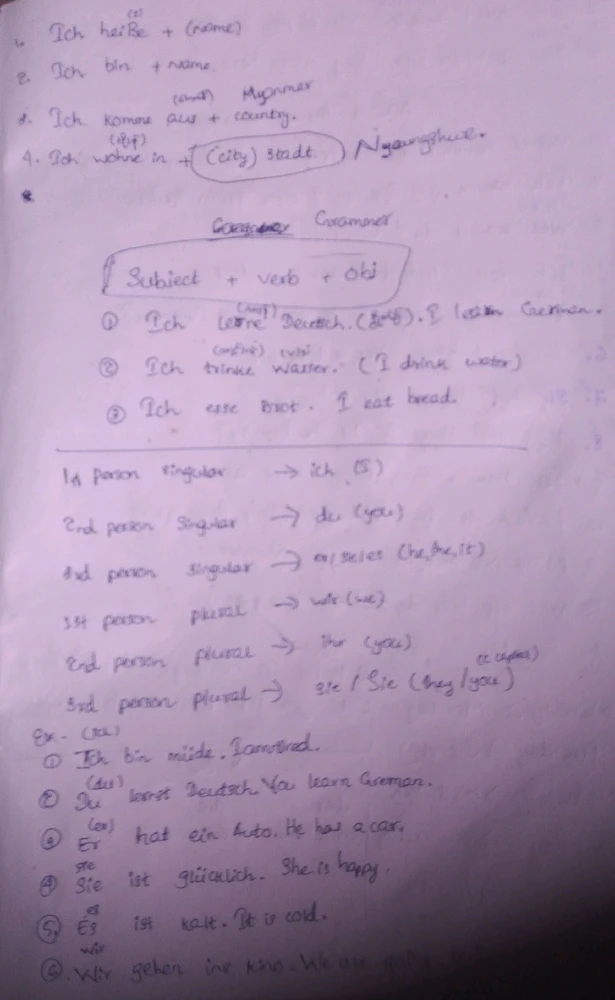 1. Ich heiße + (name)
2. Ich bin + name.
Myanmer
3. Ich komme aus + country.
4. Ich wohne in + (city) stadt Nyaungshwe.
Grammer
Subject + verb + obj
① Ich lerne Deutsch. I learn German.
② Ich trinke Wasser. (I drink water)
③ Ich esse Brot. I eat bread.
1st person singular → ich (I)
2nd person singular → du (you)
3rd person singular → er/sie/es (he, she, it)
1st person plural → wir (we)
2nd person plural → ihr (you)
3rd person plural → sie / Sie (they/you)
Ex - (ich)
① Ich bin müde. I am tired.
(du)
② Du lernst Deutsch. You learn German.
(er)
③ Er hat ein Auto. He has a car.
sie
④ Sie ist glücklich. She is happy.
es
5. Es ist kalt. It is cold.
wir
⑥. Wir gehen ins Kino. We are